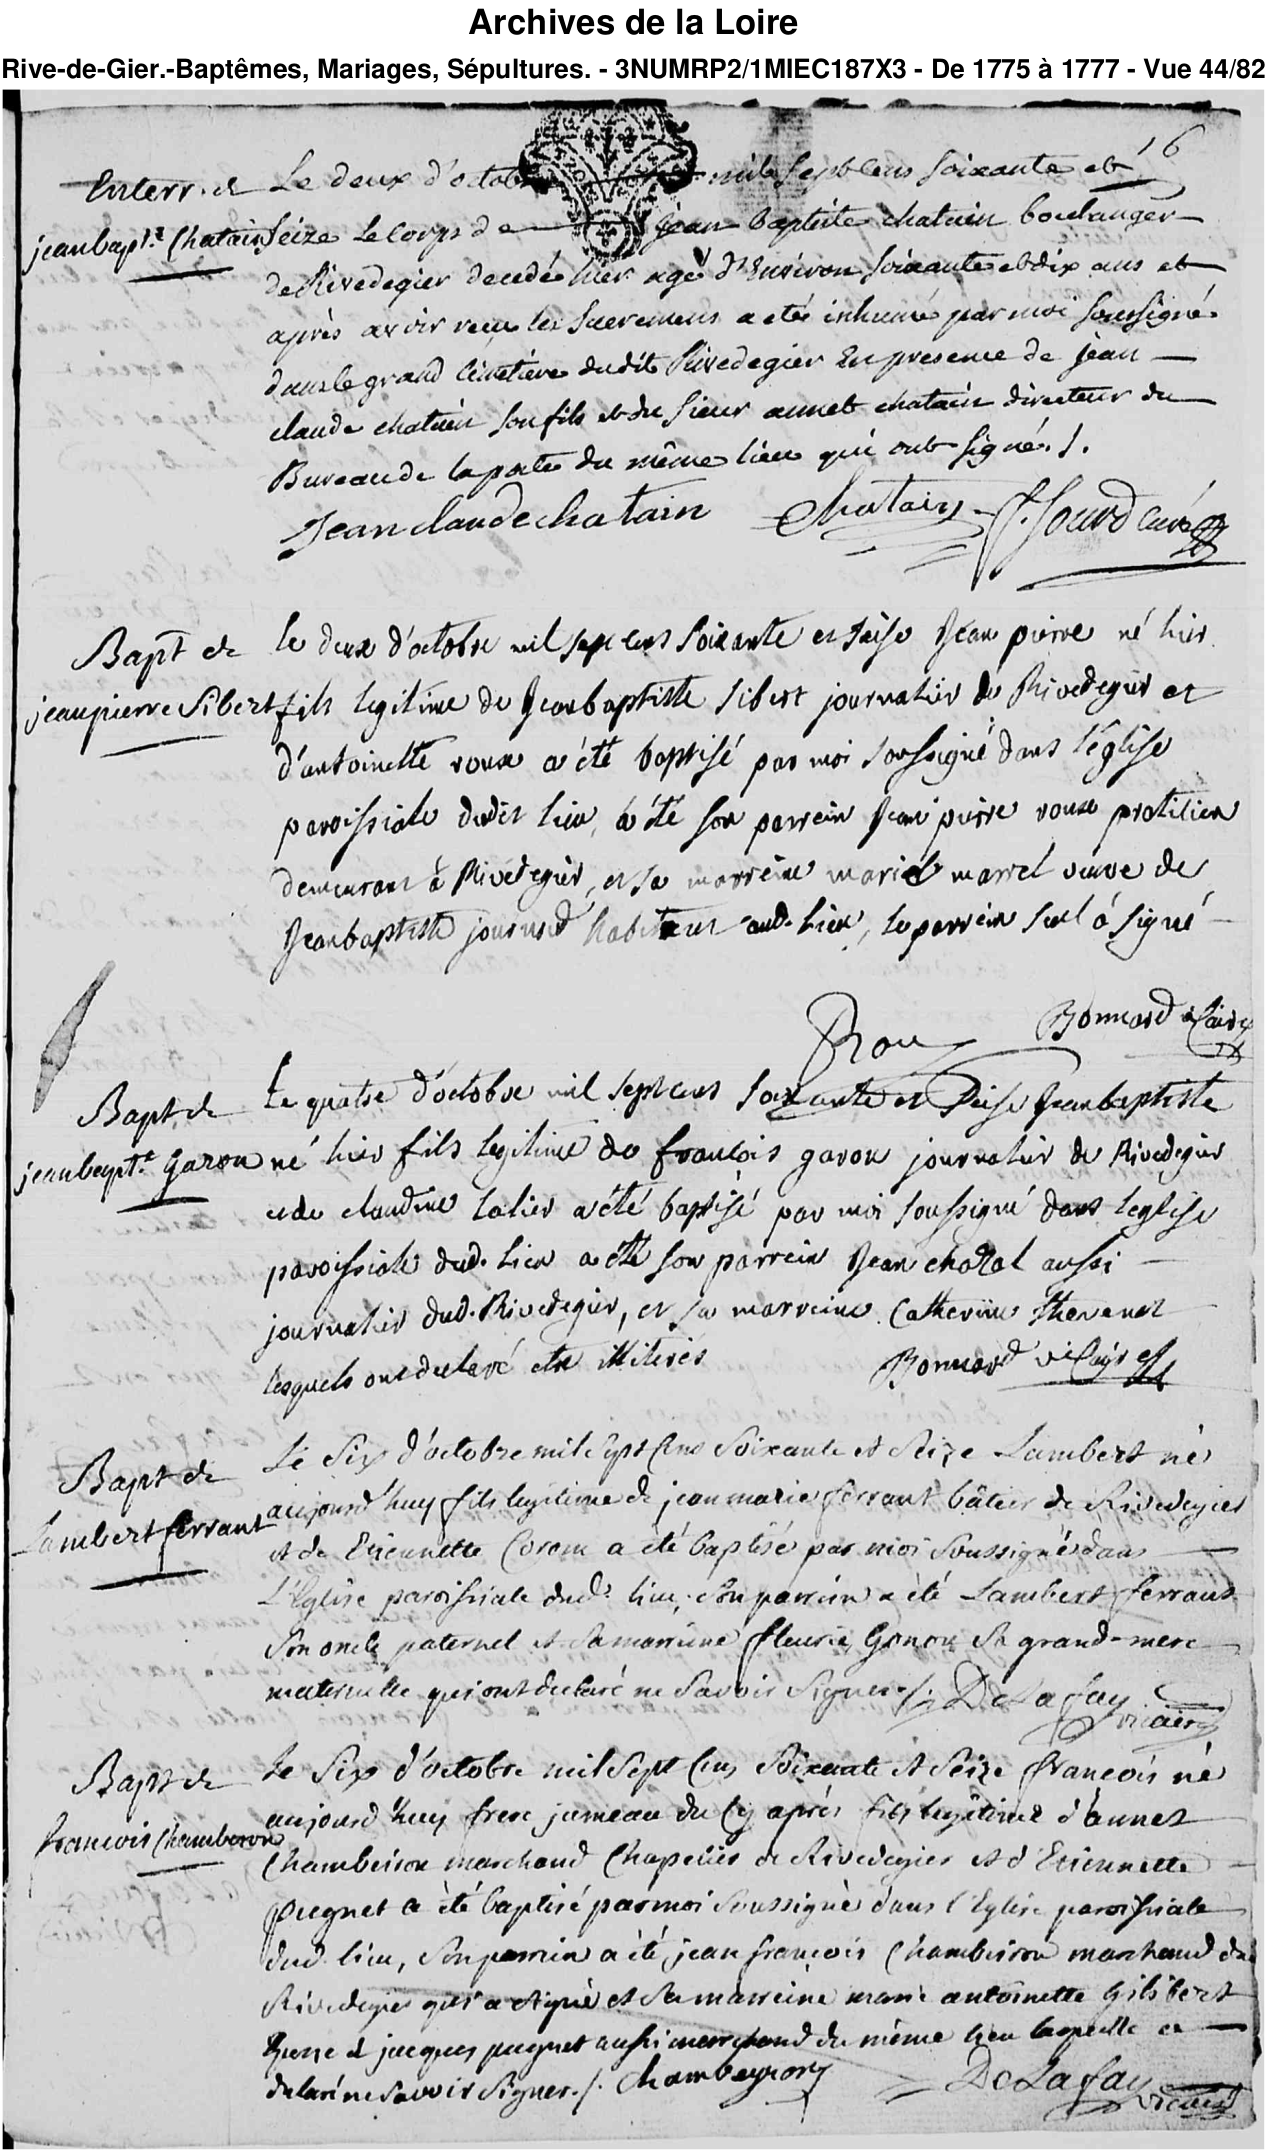 Archives de la Loire
Rive-de-Gier.-Baptêmes, Mariages, Sépultures. - 3NUMRP2/1MIEC187X3 - De 1775 à 1777 - Vue 44/82
16
Enterr. de
jean bapt.e Chatain
Le deux d'octobre mil sept cens soixante et
seize le corps de jean Baptiste chatain boulanger
de Rivedegier decedé hier agé d'environ soixante et dix ans et
après avoir reçu les sacremens a eté inhumé par moi soussigné
dans le grand cimetière dudit Rivedegier en presence de jean
claude chatain son fils et du sieur annet chatain directeur du
Bureau de la poste du même lieu qui ont signé ./.
Jean claude chatain Chatain Jourd curé
Bapt de
jean pierre Sibert
le deux d'octobre mil sept cens soixante et seise Jean pierre né hier
fils legitime de Jean baptiste sibert journalier de Rivedegier et
d'antoinette roux a été baptisé par moi soussigné dans l'église
paroissiale dudit lieu, a été son parrein Jean pierre roux praticien
demeurant à Rivedegier, et sa marreine marie marrel veuve de
Jean baptiste journud habitant aud. lieu, le parrein seul a signé
Rou Bonnard vicaire
Bapt de
jean bapt.e Garon
Le quatre d'octobre mil sept cens soixante et seise Jean baptiste
né hier fils legitime de francois garon journalier de Rivedegier
et de claudine a été baptisé par moi soussigné dans leglise
paroissiale dud. lieu a été son parrein Jean chazal aussi
journalier dud. Rivedegier, et sa marreine Catherine thevenet
lesquels ont declaré etre illiterés Bonnard vicaire
Bapt de
Lambert ferrant
Le Six d'octobre mil Sept Cens Soixante et Seize Lambert né
aujourd'huy fils legitime de jean marie ferrant bâtier de Rivedegier
et de Etiennette Coron a été baptisé par moi soussigné dans
L'Eglise paroissiale dud. lieu, Son parrein a été Lambert ferrant
Son oncle paternel et Sa marreine fleurie Gonon Sa grand-mere
maternelle qui ont declaré ne Savoir Signer ./. DeLafay
vicaire
Bapt de
francois Chambeiron
Le Six d'octobre mil Sept Cens Soixante et Seize francois né
aujourd'huy frere jumeau du Cy après fils legitime d'annet
Chambeiron marchand Chapelier de Rivedegier et d'Etiennette
pugnet a été baptisé par moi Soussigné dans l'Eglise paroissiale
dud. lieu, Son parrein a été jean francois Chambeiron marchand de
Rivedegier qui a Signé et Sa marreine marie antoinette Gilibert
de jacques pugnet aussi marchand du même lieu laquelle a
declaré ne Savoir Signer ./. Chambeyron DeLafay
vicaire